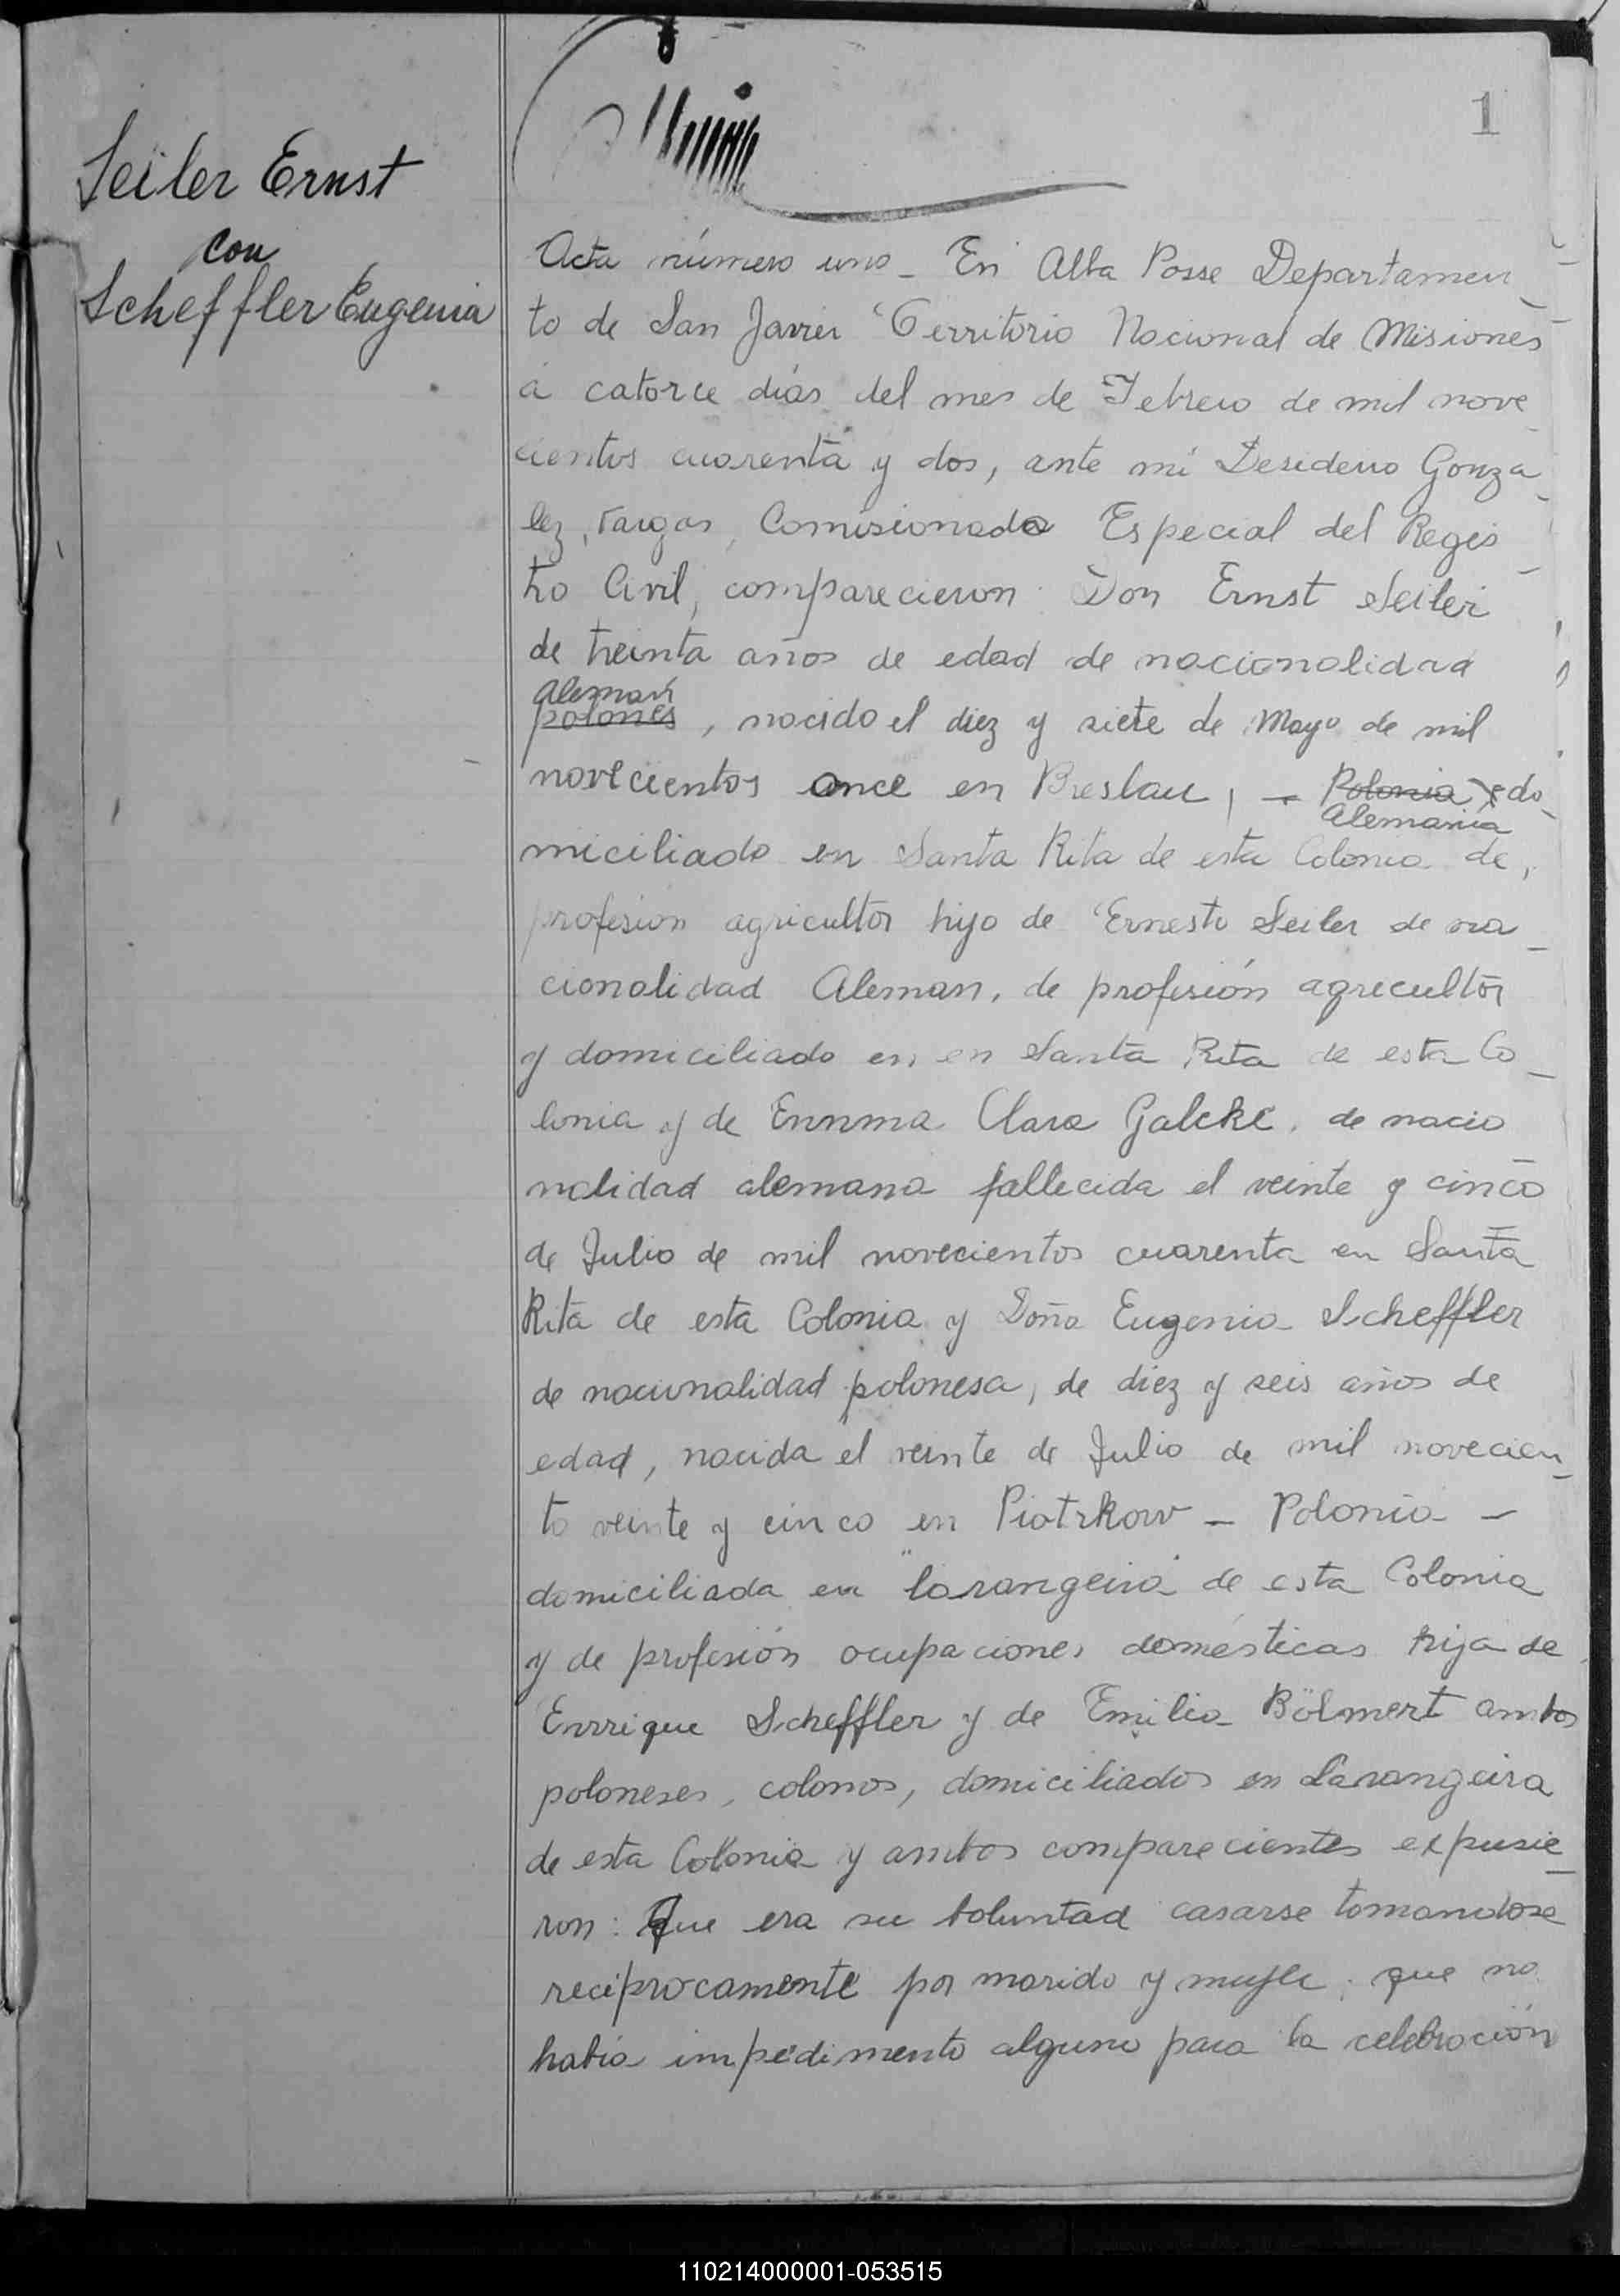 1
Seiler Ernst
con
Scheffler Eugenia
Acta número uno _ En Alba Posse Departamen_
to de San Javier Territorio Nacional de Misiones
á catorce dias del mes de Febrero de mil nove_
cientos cuarenta y dos, ante mi Desiderio Gonza_
lez Vargas, Comisionado Especial del Regis_
tro Civil, comparecieron Don Ernst Seiler
de treinta años de edad de nacionalidad
aleman
polones, nacido el diez y siete de Mayo de mil
novecientos once en Breslau, _ Polonia, do_
Alemania
miciliado en Santa Rita de esta Colonia de,
profesion agricultor hijo de Ernesto Seiler de na_
cionalidad Aleman, de profesión agrecultor
y domiciliado en en Santa Rita de esta Co_
lonia y de Ennma Clara Galcke, de nacio_
nalidad alemana fallecida el veinte y cinco
de Julio de mil novecientos cuarenta en Santa
Rita de esta Colonia y Doña Eugenia Scheffler
de nacionalidad polonesa, de diez y seis años de
edad, nacida el veinte de Julio de mil novecien_
to veinte y cinco en Piotrkow _ Polonia _
domiciliada en "larangeira" de esta Colonia
y de profesión ocupaciones domésticas hija de
Enrrique Scheffler y de Emilia Bölmert ambos
poloneses, colonos, domiciliados en Larangeira
de esta Colonia y ambos comparecientes expusie_
ron: Que era su boluntad casarse tomandose
reciprocamente por marido y mujer, que no
había impedimento alguno para la celebración
110214000001-053515